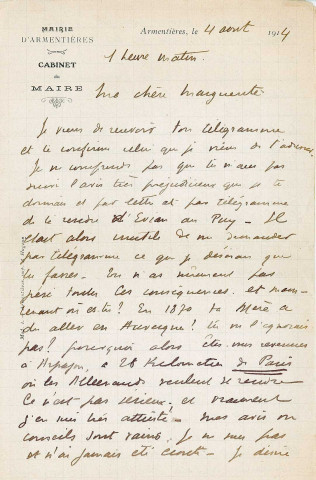 MAIRIE
D'ARMENTIÈRES
CABINET
du
MAIRE
Armentières, le 4 août 1914
1 heure matin.
Ma chère Marguerite
Je viens de recevoir ton télégramme
et te confirme celui que je viens de t'adresser.
Je ne comprends pas que tu n'aies pas
suivi l'avis très que je te
donnais et par lettre et par télégramme
de te rendre d'Evian au Puy - Il
était alors inutile de me demander
par télégramme ce que je désirais que
tu fasses. Tu n'as sûrement pas
pesé toutes les conséquences. et main-
tenant où es tu? En 1870 ta Mère a
du aller en Auvergne! tu ne l'ignorais
pas? pourquoi alors êtes vous revenues
à Arpajon, à 28 Kilomètres de Paris
où les Allemands veulent se rendre
Ce n'est pas sérieux. et vraiment
j'en suis très attristé - mes avis ou
conseils sont vains, je ne suis pas
et n'ai jamais été écouté - je désire